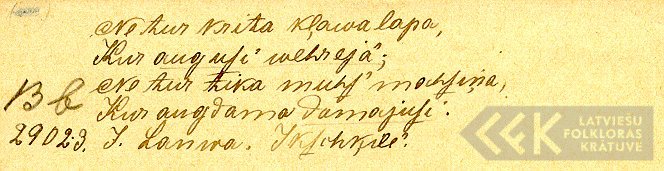 Ne tur krita kļawa lapa,
Kur augusi wehrejâ;
Ne tur tika muhs' mahsiņa,
Kur augdama damajusi.
B b
29023. J. Lanwa. Ikschķile.
LATVIEŠU
FOLKLORAS
KRĀTUVE